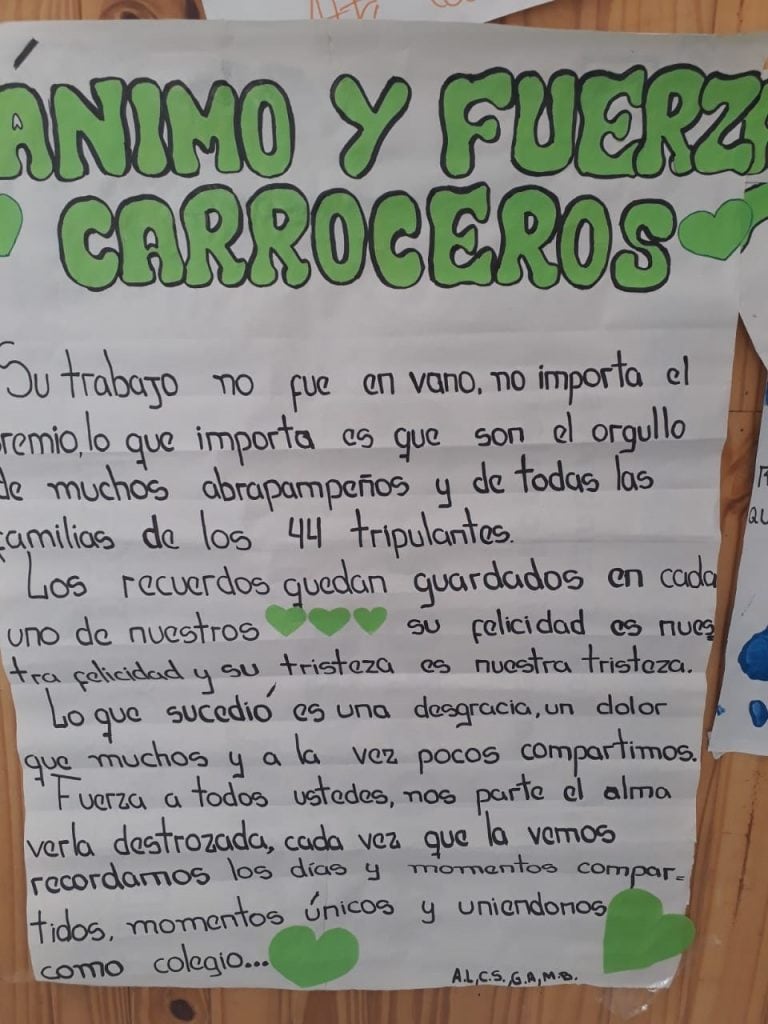 ÁNIMO Y FUERZA
CARROCEROS
Su trabajo no fue en vano, no importa el
premio, lo que importa es que son el orgullo
de muchos abrapampeños y de todas las
familias de los 44 tripulantes.
Los recuerdos quedan guardados en cada
uno de nuestros su felicidad es nues
tra felicidad y su tristeza es nuestra tristeza.
Lo que sucedió es una desgracia, un dolor
que muchos y a la vez pocos compartimos.
Fuerza a todos ustedes, nos parte el alma
verla destrozada, cada vez que la vemos
recordamos los días y momentos compar=
tidos, momentos únicos y uniendonos
como colegio...
A.L, C.S, G.A, M.B.